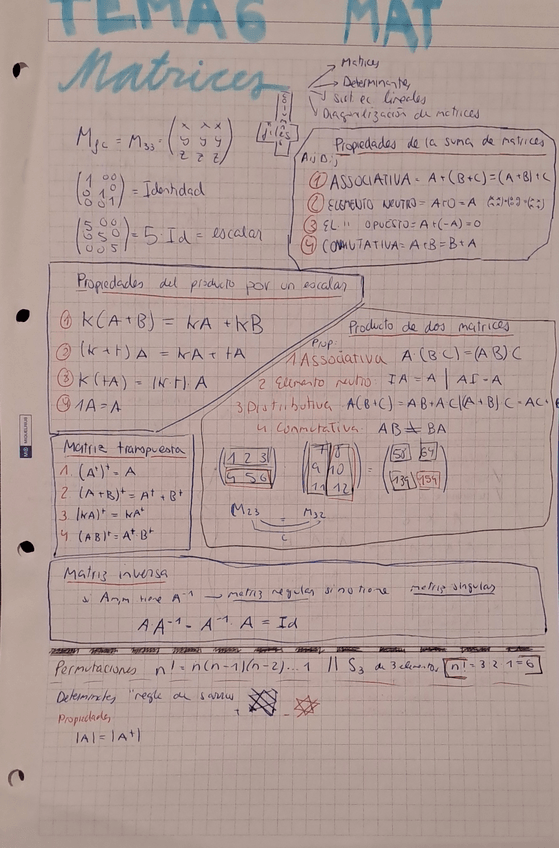 TEMA 6 MAT
Matrices
→ Matrices
→ Determinantes
Sist ec lineales
Diagonalización de matrices
M = M₃₃ = (x x x / y y y / z z z)
(1 0 0 / 0 1 0 / 0 0 1) = Identidad
(5 0 0 / 0 5 0 / 0 0 5) = 5·Id = escalar
Propiedades de la suma de matrices
① ASSOCIATIVA = A+(B+C)=(A+B)+C
② ELEMENTO NEUTRO = A+0=A
③ EL " OPUESTO = A+(-A)=0
④ CONMUTATIVA = A+B=B+A
Propiedades del producto por un escalar
① K(A+B) = KA + KB
② (K+t)A = KA + tA
③ K(tA) = (K·t)·A
④ 1A = A
Producto de dos matrices
Prop
1 Associativa A(BC)=(AB)C
2 Elemento neutro: IA=A | AI=A
3 Distributiva A(B+C)=AB+AC|(A+B)C=AC+
4 Conmutativa: AB≠BA
(1 2 3 / 4 5 6) · (7 8 / 9 10 / 11 12) = (58 64 / 139 154)
M₂₃ = M₃₂
Matriz transpuesta
1. (Aᵗ)ᵗ = A
2 (A+B)ᵗ = Aᵗ + Bᵗ
3. (KA)ᵗ = KAᵗ
4. (AB)ᵗ = Aᵗ·Bᵗ
Matriz inversa
si tiene A⁻¹ → matriz regular si no tiene matriz singular
A A⁻¹ = A⁻¹·A = Id
Permutaciones n! = n(n-1)(n-2)...1 || S₃ de 3 elementos n! = 3·2·1=6
Determinantes "regla de sarrus
+ -
Propiedades
|A| = |Aᵗ|
MIQUELRIUS